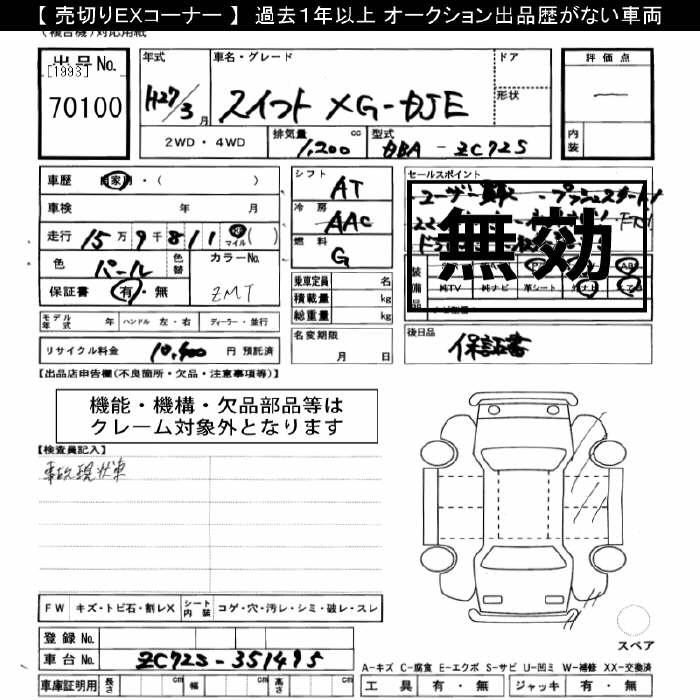 【 売切りEXコーナー 】 過去１年以上 オークション出品歴がない車両
(複合機)対応用紙
出品No.
[1993]
70100
年式
H27/3月
車名・グレード
スイフト XG-DJE
ドア
形状
評価点
—
内装
2WD・4WD
排気量
1,200 cc
型式
DBA-ZC72S
車歴 自家用・( )
車検 年 月
走行 15万9千811 km マイル ( )
色 パール 色替
カラーNo. ZMT
保証書 有・無
シフト AT
冷房 AAC
燃料 G
セールスポイント
ユーザー買取 プッシュスタート
無効
装備品
純TV 純ナビ 革シート
乗車定員 名
積載量 kg
総重量 kg
モデル年式 年 ハンドル 左・右 ディーラー・並行
名変期限
月 日
後日品
保証書
リサイクル料金 10,400 円 預託済
【出品店申告欄(不良箇所・欠品・注意事項等)】
機能・機構・欠品部品等は
クレーム対象外となります
【検査員記入】
事故現状車
FW キズ・トビ石・割レX シート内装 コゲ・穴・汚レ・シミ・破レ・スレ
登録No.
車台No. ZC72S-351495
スペア
A-キズ C-腐食 E-エクボ S-サビ U-凹ミ W-補修 XX-交換済
車庫証明用 長さ cm 幅 cm 高さ cm
工具 有・無 ジャッキ 有・無